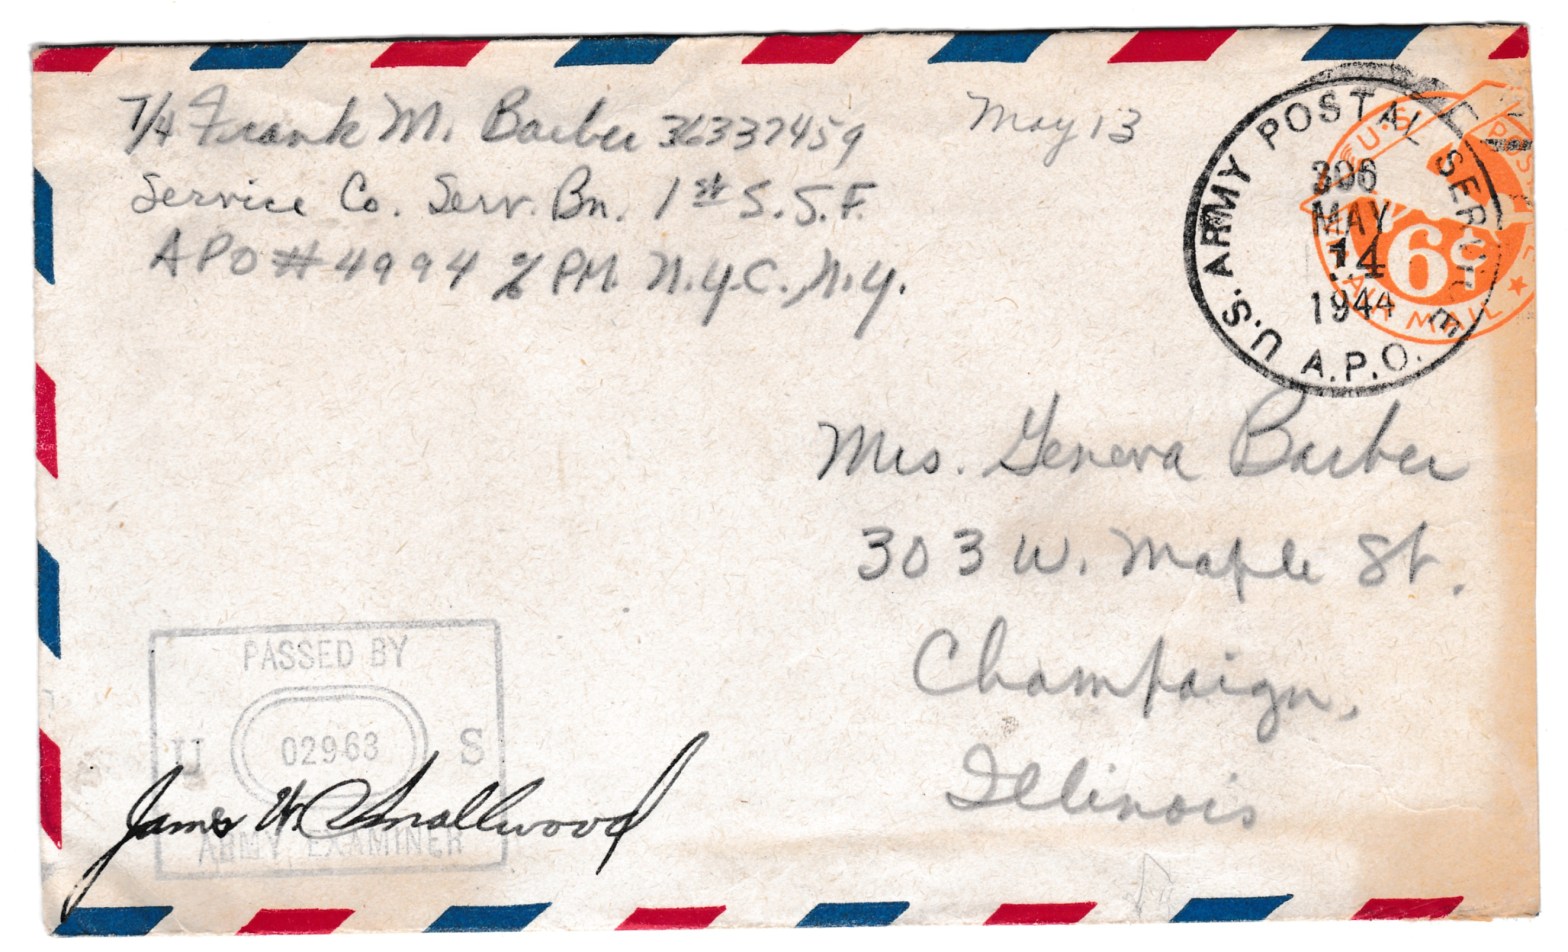 T/4 Frank M. Barber 36337459
Service Co. Serv. Bn. 1st S.S.F.
APO # 4994 % PM. N.Y.C., N.Y.
May 13
U.S. ARMY POSTAL SERVICE
A.P.O.
306
MAY
14
1944
U.S. POSTAGE
6¢
AIR MAIL
Mrs. Geneva Barber
303 W. Maple St.
Champaign,
Illinois
PASSED BY
U 02963 S
ARMY EXAMINER
James W. Smallwood